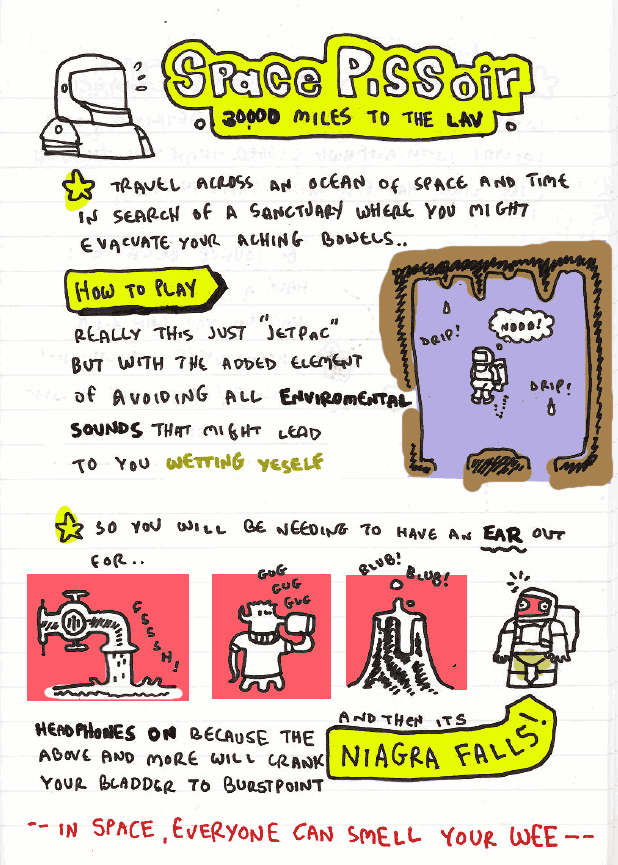 Space PiSSoir
30,000 MILES TO THE LAV
TRAVEL ACROSS AN OCEAN OF SPACE AND TIME
IN SEARCH OF A SANCTUARY WHERE YOU MIGHT
EVACUATE YOUR ACHING BOWELS..
HOW TO PLAY
REALLY THIS JUST "JETPAC"
BUT WITH THE ADDED ELEMENT
OF AVOIDING ALL ENVIROMENTAL
SOUNDS THAT MIGHT LEAD
TO YOU WETTING YESELF
NOOO!
DRIP!
DRIP!
SO YOU WILL BE NEEDING TO HAVE AN EAR OUT
FOR..
SSSSSH!
GUG
GUG
GUG
BLUB!
BLUB!
HEADPHONES ON BECAUSE THE
ABOVE AND MORE WILL CRANK
YOUR BLADDER TO BURSTPOINT
AND THEN ITS
NIAGRA FALLS!
-- IN SPACE, EVERYONE CAN SMELL YOUR WEE --